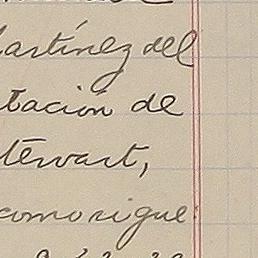 Martínez del
tación de
Stewart,
como sigue: